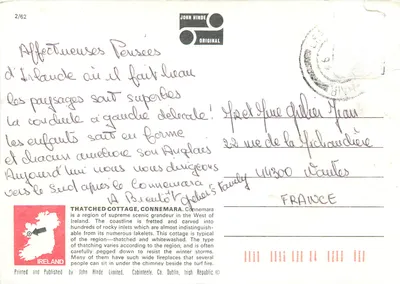 2/62
JOHN HINDE
ORIGINAL
Affectueuses Pensées
d'Irlande où il fait beau
les paysages sont superbes
la conduite à gauche délicate!
les enfants sont en forme
et chacun améliore son Anglais
Aujourd'hui nous nous dirigeons
vers le Sud après le Connemara.
A Bientôt
Family
Mr et Mme Jean
22 rue de la
44300 Nantes
FRANCE
IRELAND
THATCHED COTTAGE, CONNEMARA. Connemara
is a region of supreme scenic grandeur in the West of
Ireland. The coastline is fretted and carved into
hundreds of rocky inlets which are almost indistinguish-
able from its numerous lakelets. This cottage is typical
of the region—thatched and whitewashed. The type
of thatching varies according to the region, and is often
carefully pegged down to resist the winter storms.
Many of these cottages have wide fireplaces that several
people can sit in under the chimney beside the turf fire.
Printed and Published by John Hinde Limited, Cabinteely, Co. Dublin, Irish Republic